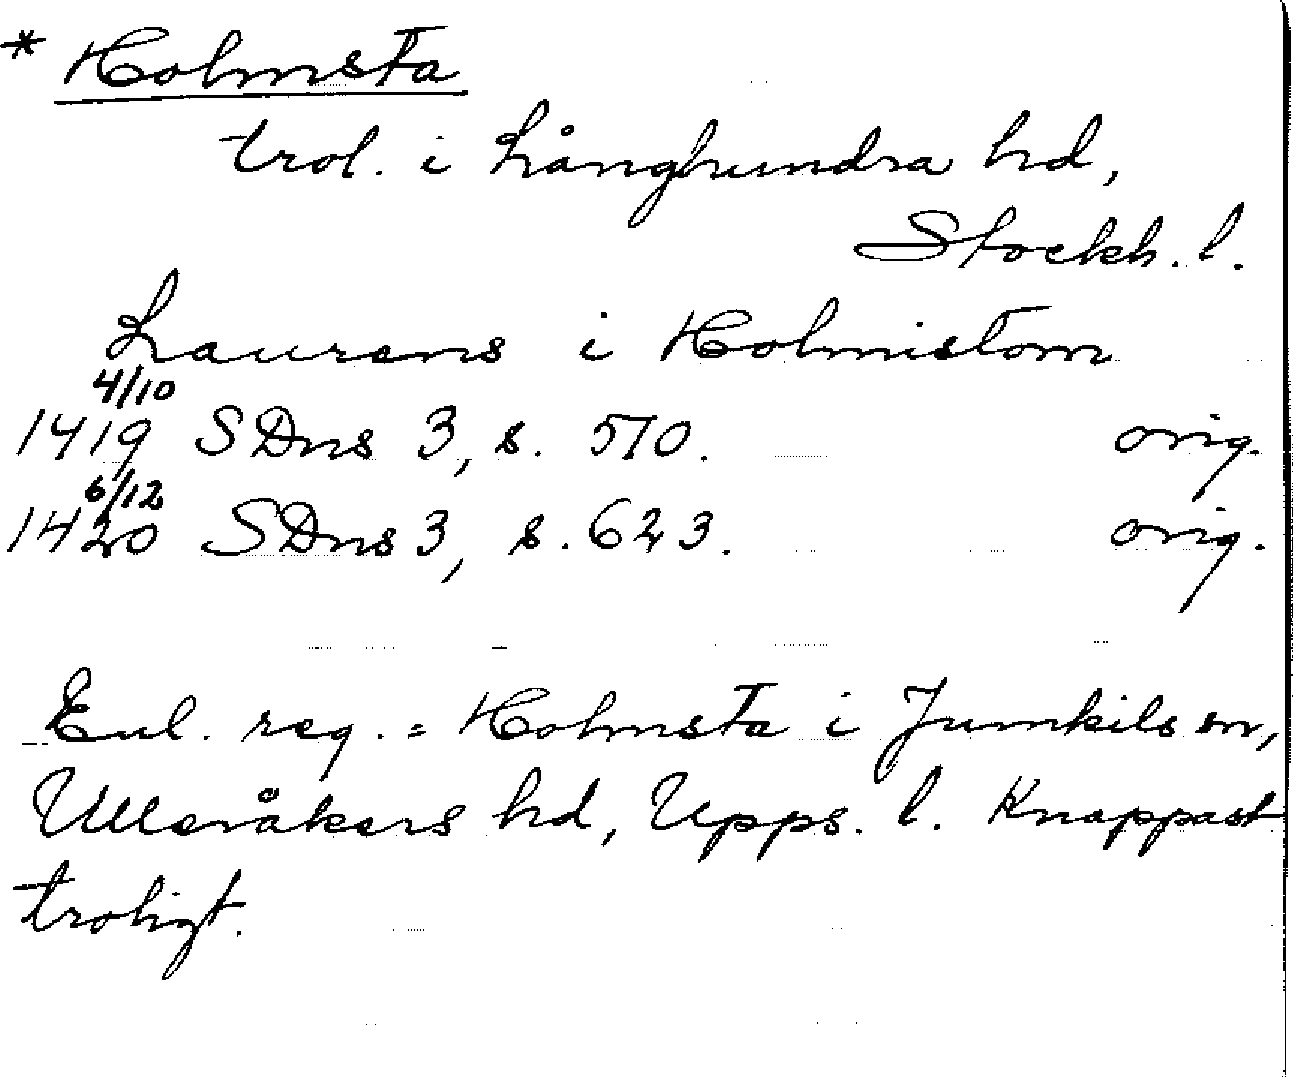 * Holmsta
trol. i Långhundra hd,
Stockh. l.
Laurens i Holmistom
4/10
1419 SDns 3, s. 510. orig.
6/12
1420 SDns 3, s. 623. orig.
Enl. reg. = Holmsta i Jumkils sn,
Ulleråkers hd, Upps. l. Knappast
troligt.